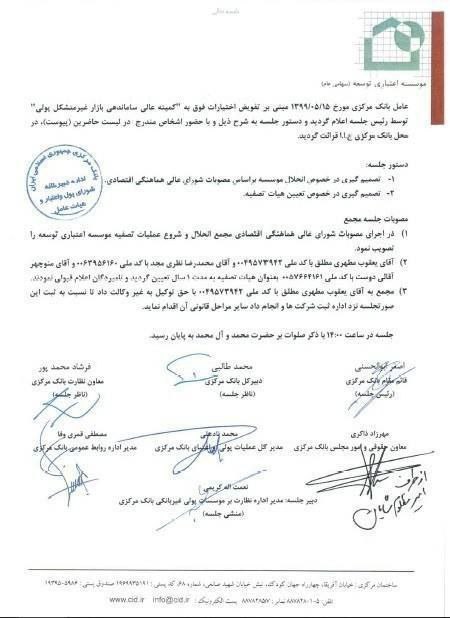 باسمه تعالی
موسسه اعتباری توسعه (سهامی عام)
عامل بانک مرکزی مورخ ۱۳۹۹/۰۵/۱۵ مبنی بر تفویض اختیارات فوق به "کمیته عالی ساماندهی بازار غیرمتشکل پولی"
توسط رئیس جلسه اعلام گردید و دستور جلسه به شرح ذیل و با حضور اشخاص مندرج در لیست حاضرین (پیوست)، در
محل بانک مرکزی ج.ا.ا قرائت گردید.
دستور جلسه:
۱- تصمیم گیری در خصوص انحلال موسسه براساس مصوبات شورای عالی هماهنگی اقتصادی.
۲- تصمیم گیری در خصوص تعیین هیات تصفیه.
بانک مرکزی جمهوری اسلامی ایران
اداره دبیرخانه
شورای پول و اعتبار و
هیات عامل
مصوبات جلسه مجمع
۱) در اجرای مصوبات شورای عالی هماهنگی اقتصادی مجمع انحلال و شروع عملیات تصفیه موسسه اعتباری توسعه را
تصویب نمود.
۲) آقای یعقوب مطهری مطلق با کد ملی ۰۰۴۹۵۷۳۹۴۲ و آقای محمدرضا نظری مجد با کد ملی ۰۰۶۳۹۵۶۱۶۰ و آقای منوچهر
آقائی دوست با کد ملی ۰۰۵۷۶۶۴۱۶۱ بعنوان هیات تصفیه به مدت ۱ سال تعیین گردید و نامبردگان اعلام قبولی نمودند.
۳) مجمع به آقای یعقوب مطهری مطلق با کد ملی ۰۰۴۹۵۷۳۹۴۲ با حق توکیل به غیر وکالت داد تا نسبت به ثبت این
صورتجلسه نزد اداره ثبت شرکت ها و انجام سایر مراحل قانونی آن اقدام نماید.
جلسه در ساعت ۱۴:۰۰ با ذکر صلوات بر حضرت محمد و آل محمد به پایان رسید.
اصغر ابوالحسنی
قائم مقام بانک مرکزی
(رئیس جلسه)
محمد طالبی
دبیرکل بانک مرکزی
(ناظر جلسه)
فرشاد محمد پور
معاون نظارت بانک مرکزی
(ناظر جلسه)
مهرزاد ذاکری
معاون حقوقی و امور مجلس بانک مرکزی
محمد نادعلی
مدیر کل عملیات پولی و اعتباری بانک مرکزی
مصطفی قمری وفا
مدیر اداره روابط عمومی بانک مرکزی
نعمت اله کریمی
دبیر جلسه: مدیر اداره نظارت بر موسسات پولی غیربانکی بانک مرکزی
(منشی جلسه)
از طرف
ساختمان مرکزی : خیابان آفریقا، چهارراه جهان کودک، نبش خیابان شهید صانعی، شماره ۶۸، کد پستی : ۱۹۶۹۹۳۵۱۹۱ صندوق پستی : ۵۹۸۴-۱۹۳۹۵
تلفن : ۵-۸۸۷۸۲۸۰۱ نمابر : ۸۸۷۸۲۸۵۷ پست الکترونیک : info@cid.ir www.cid.ir